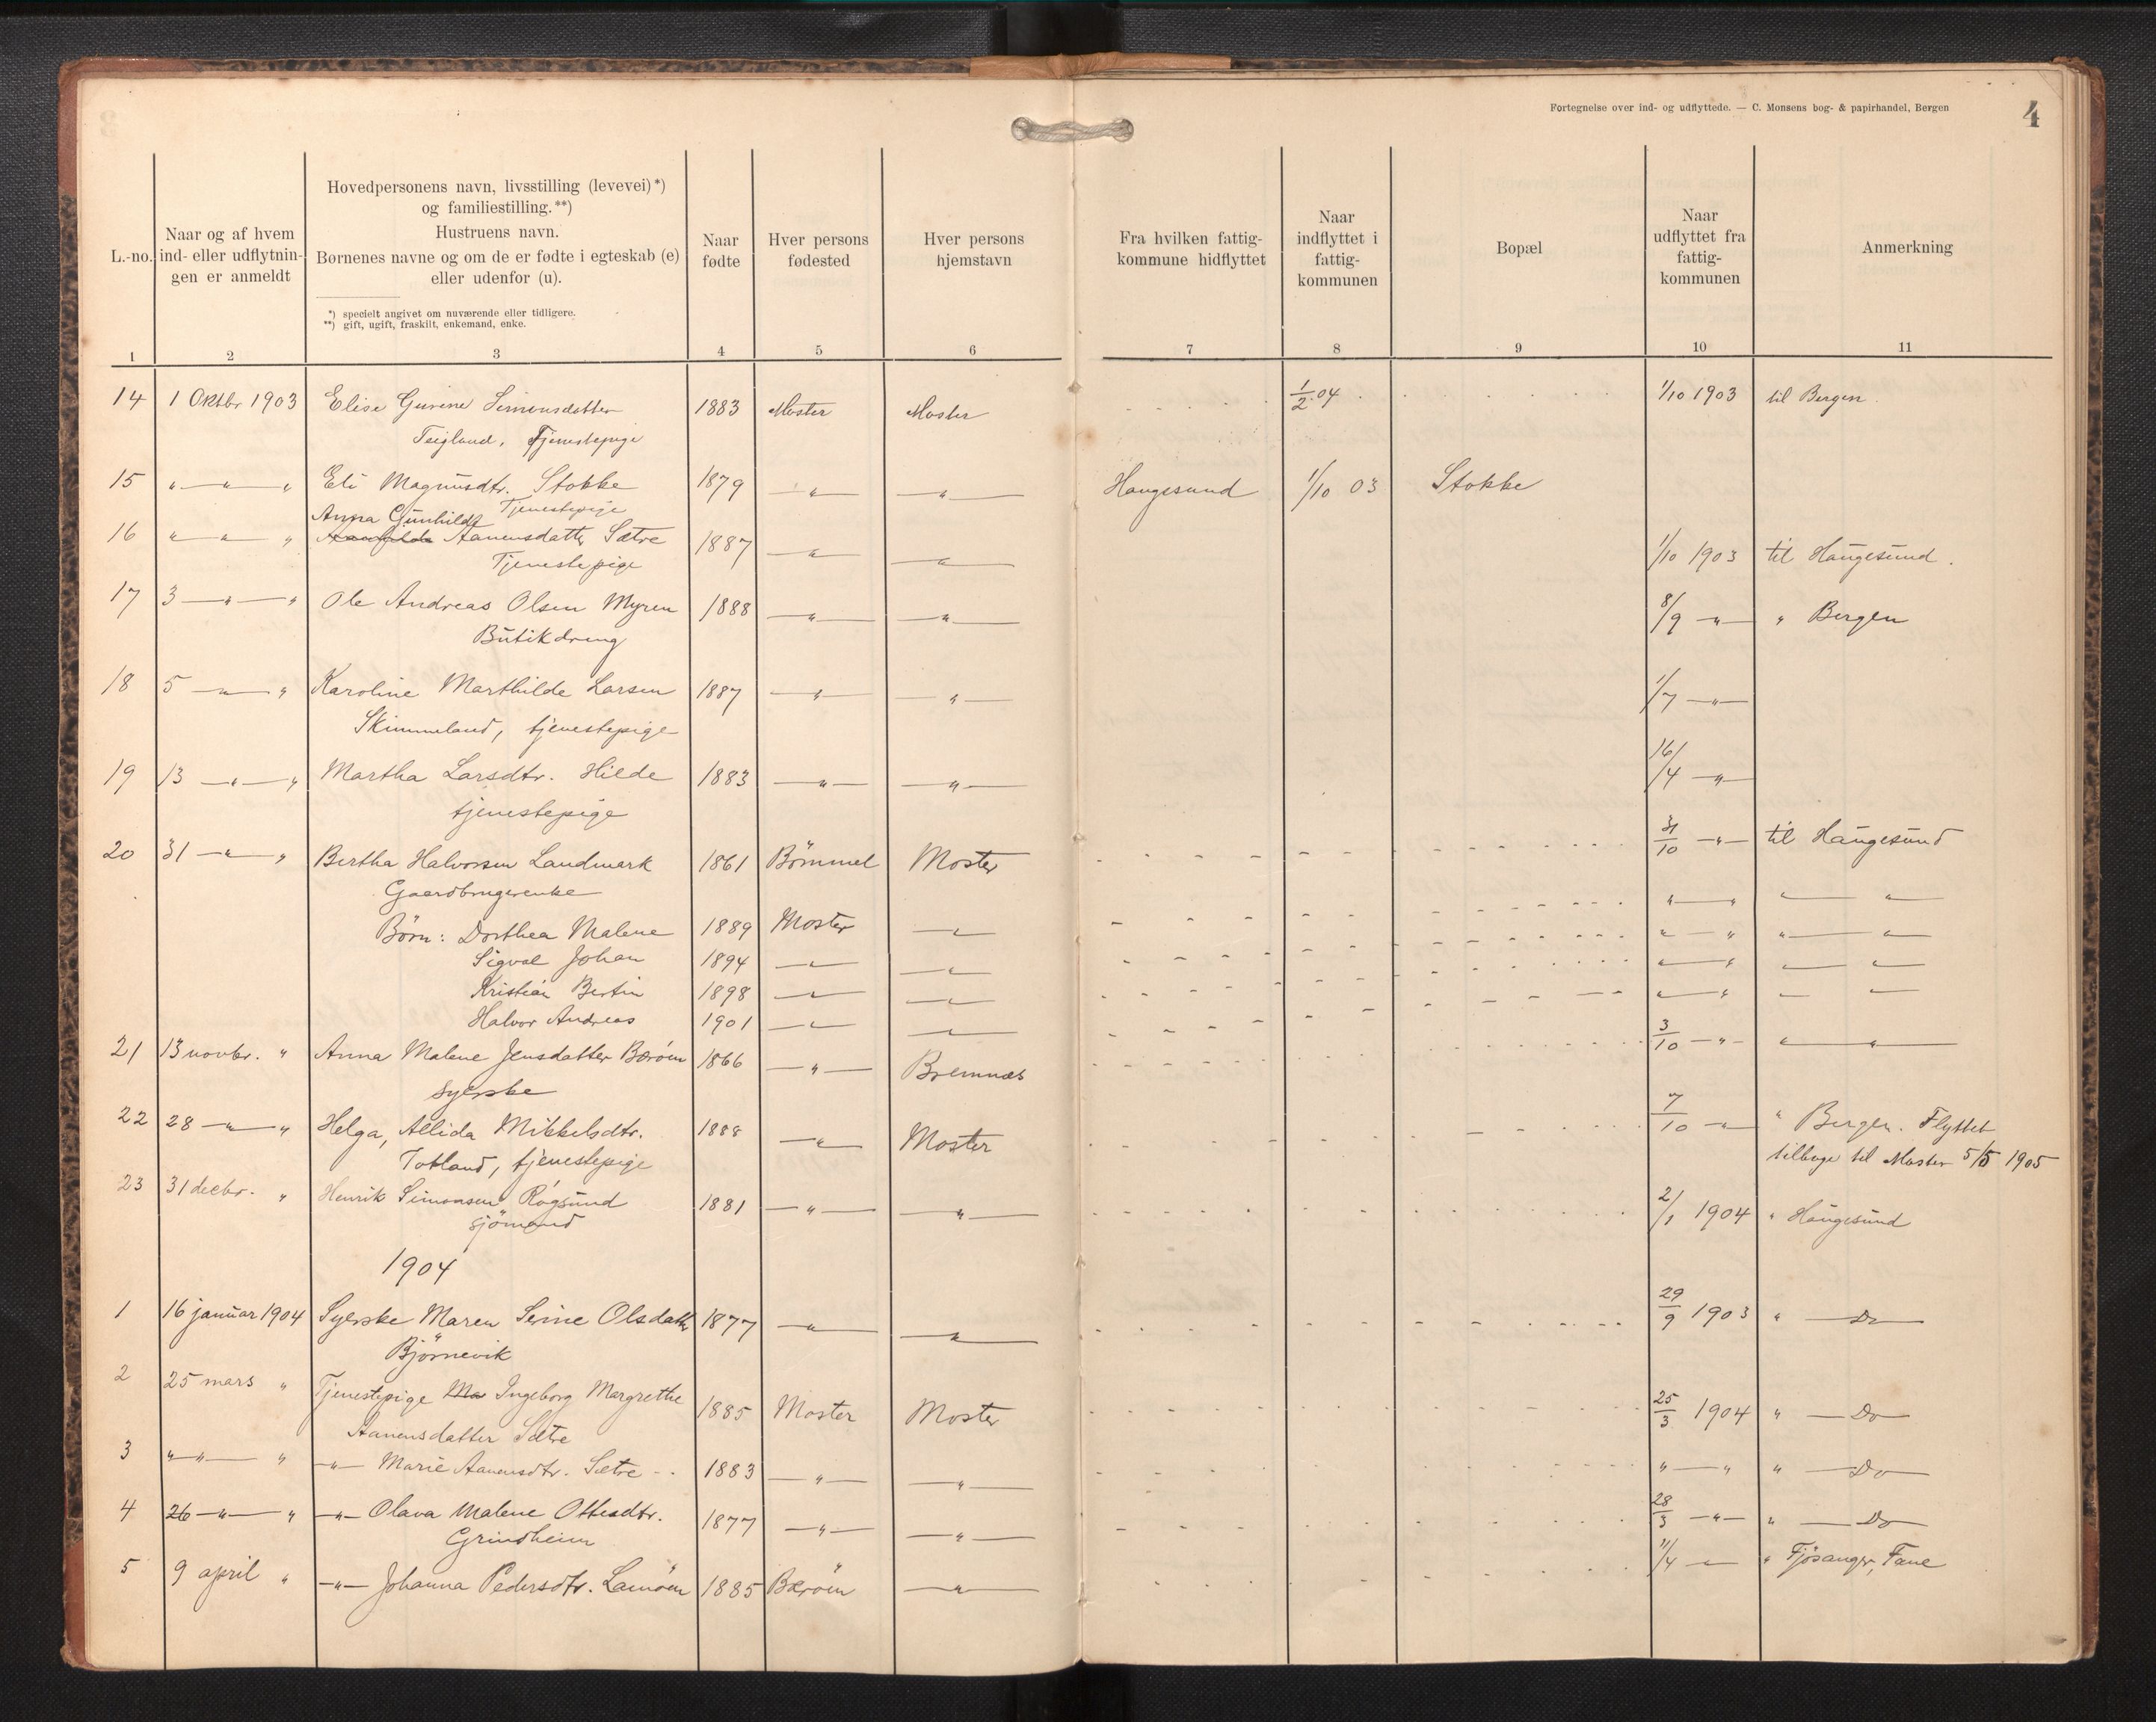 Fortegnelse over ind- og udflyttede. — C. Monsens bog- & papirhandel, Bergen
4
L.-no.
Naar og af hvem
ind- eller udflytnin-
gen er anmeldt
Hovedpersonens navn, livsstilling (levevei)*)
og familiestilling.**)
Hustruens navn.
Børnenes navne og om de er fødte i egteskab (e)
eller udenfor (u).
*) specielt angivet om nuværende eller tidligere.
**) gift, ugift, fraskilt, enkemand, enke.
Naar
fødte
Hver persons
fødested
Hver persons
hjemstavn
Fra hvilken fattig-
kommune hidflyttet
Naar
indflyttet i
fattig-
kommunen
Bopæl
Naar
udflyttet fra
fattig-
kommunen
Anmerkning
1 2 3 4 5 6 7 8 9 10 11
14 1 Oktbr 1903 Elise Gurine Simonsdatter 1883 Moster Moster 1/2 04 1/10 1903 til Bergen.
Teigland, Tjenestepige
15 " — " — " Eli Magnusdtr. Stokke 1879 — " — — " — Haugesund 1/10 03 Stokke
Tjenestepige
Anna Gunhilde
16 " — " — " Aanensdatter Sætre 1887 — " — — " — 1/10 1903 til Haugesund.
Tjenestepige
17 3 — " — " Ole Andreas Olsen Myren 1888 — " — — " — 8/9 — " — " Bergen
Butikdreng
18 5 — " — " Karoline Marthilde Larsen 1887 — " — — " — 1/7 — " —
Skimmeland, tjenestepige
19 13 — " — " Martha Larsdtr. Hilde 1883 — " — — " — 16/4 — " —
tjenestepige
20 31 — " — " Bertha Halvorsen Landmark 1861 Bömmel Moster 31/10 — " — til Haugesund
Gaardbrugerenke " — " " — "
Börn: Dorthea Malene 1889 Moster — " — " — " " — "
Sigval Johan 1894 — " — — " — " — " " — "
Kristian Bertin 1898 — " — — " — " — " " — "
Halvor Andreas 1901 — " — — " —
21 13 novbr. " Anna Malene Jensdatter Bæröen 1866 — " — Bremnæs 3/10 — " — " — " —
Syerske
22 28 — " — " Helga, Allida Mikkelsdtr. 1888 — " — Moster 7/10 — " — " Bergen. Flyttet
Totland, tjenestepige tilbage til Moster 5/5 1905
23 31 decbr. " Henrik Simonsen Rögsund 1881 — " — — " — 2/1 1904 " Haugesund
sjömand
1904
1 16 januar 1904 Syerske Maren Serine Olsdatter 1877 — " — — " — 29/9 1903 " — Do —
Björnevik
2 25 mars " Tjenestepige Ma Ingeborg Margrethe 1885 Moster Moster 25/3 1904 " — Do —
Aanensdatter Sætre
3 " — " — " — " — Marie Aanensdtr. Sætre 1883 — " — — " — " — " " — Do —
4 26 — " — " — " — Olava Malene Ottesdtr. 1877 — " — — " — 28/3 — " — " — Do —
Grindheim
5 9 april " — " — Johanna Pedersdtr. Lamöen 1885 Bæröen — " — 11/4 — " — " Fjösanger, Fane